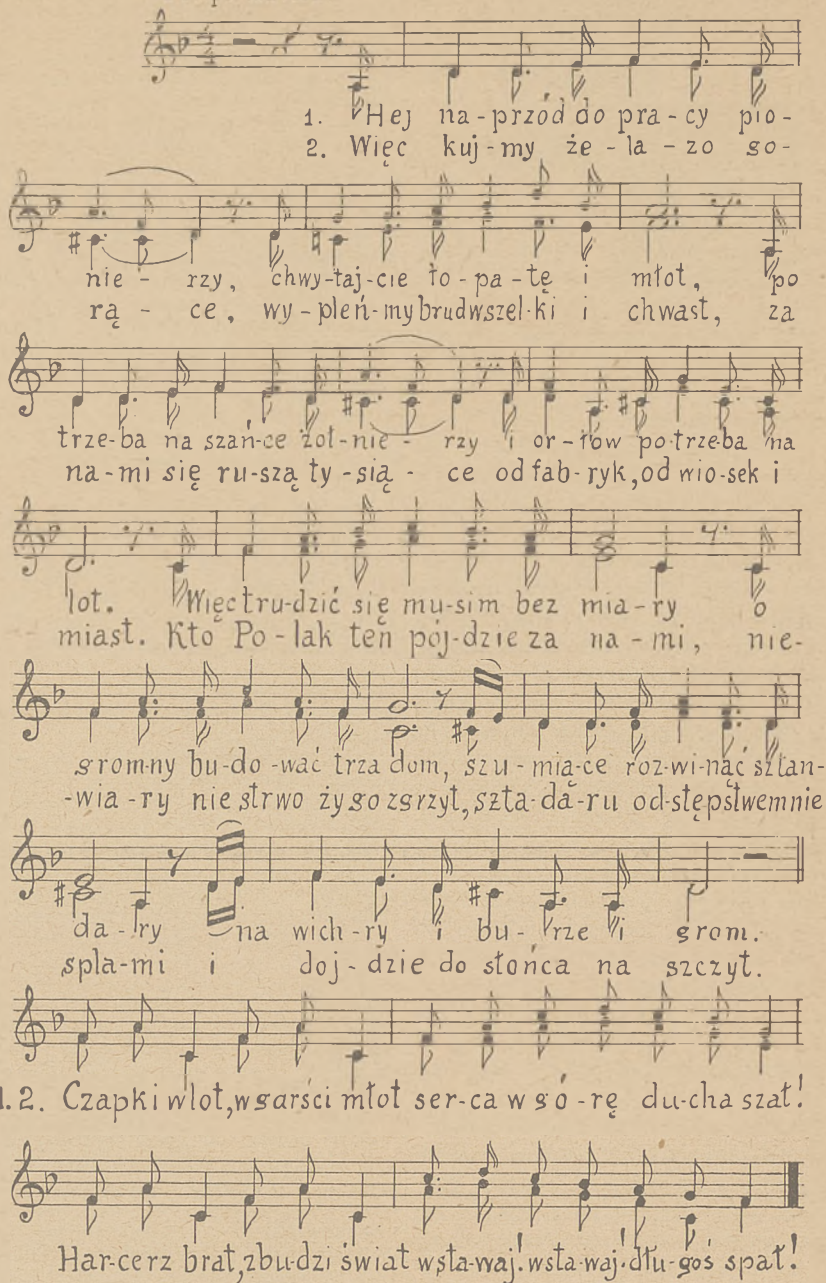 1. Hej na-przód do pra-cy pio-
2. Więc kuj-my że-la-zo go-
nie - rzy, chwy-taj-cie ło-pa-tę i młot, po
rą - ce, wy-pleń-my brud wszel-ki i chwast, za
trze-ba na szań-ce żoł-nie - rzy i or-łów po-trze-ba na
na-mi się ru-szą ty-sią - ce od fab-ryk, od wio-sek i
lot. Więc tru-dzić się mu-sim bez mia-ry o
miast. Kto Po-lak ten pój-dzie za na-mi, nie-
grom-ny bu-do-wać trza dom, szu-mią-ce roz-wi-nąć sztan-
-wia-ry nie strwo ży go zgrzyt, szta-da-ru od-stęp-stwem nie
da-ry na wich-ry i bu-rze i grom.
spla-mi i doj-dzie do słońca na szczyt.
1.2. Czapki w lot, w garści młot ser-ca w gó-rę du-cha szał!
Har-cerz brat, zbu-dzi świat wsta-waj! wsta-waj! dłu-goś spał!